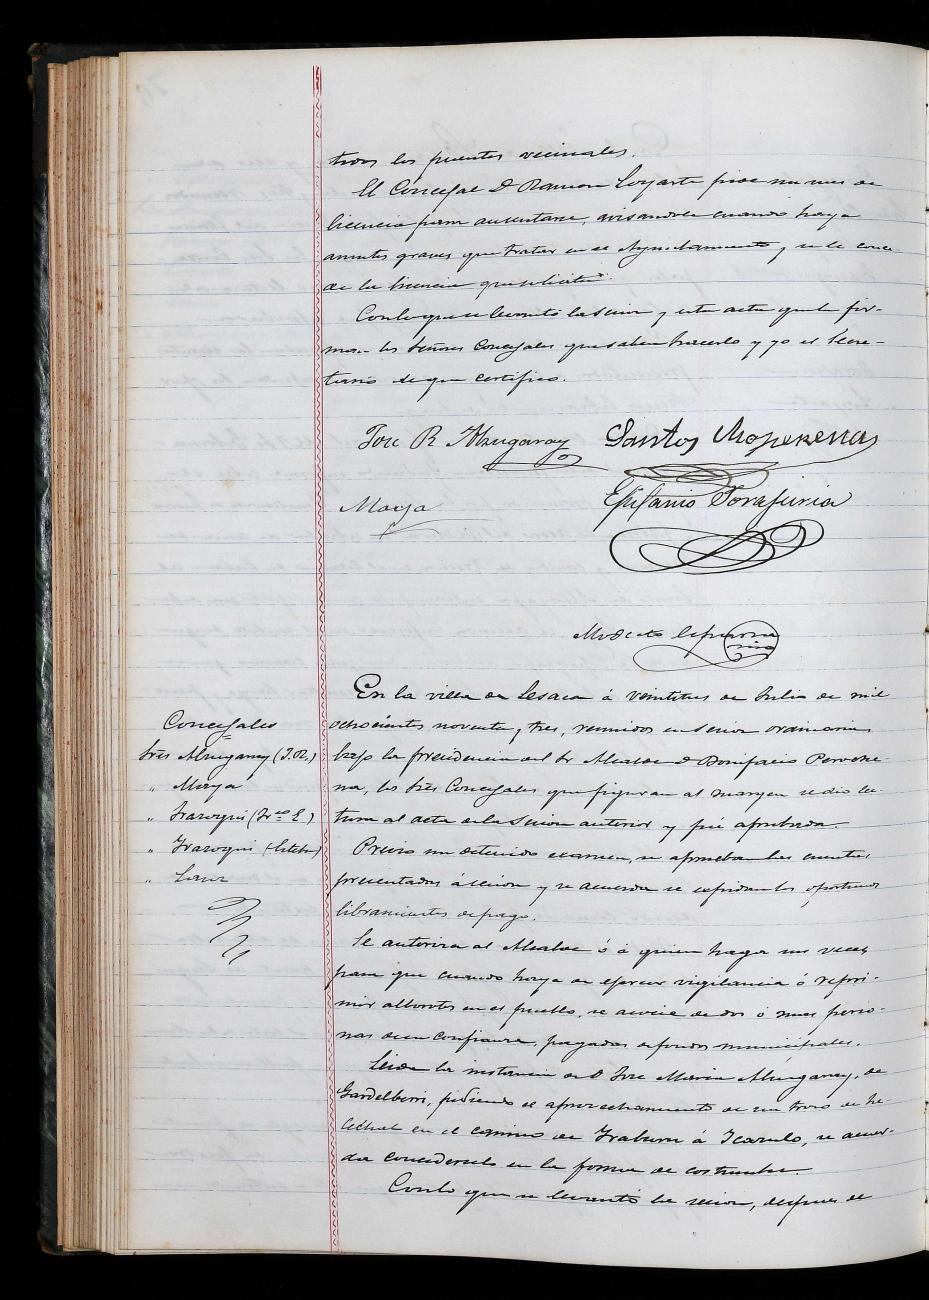 tros los puentes vecinales.
El Concejal D. Ramon Loyarte pide un mes de
licencia para ausentarse, avisandole cuando haya
asuntos graves que tratar en el Ayuntamiento y se le conce-
de la licencia que solicita.
Con lo que se levantó la sesion y esta acta que la fir-
man los Señores Concejales que saben hacerlo y yo el Secre-
tario de que certifico.
Jose R. Alzugaray Santos Moperena
Maya Epifanio Torafuria
Modesto
En la villa de Lesaca á veintitres de Julio de mil
ochocientos noventa y tres, reunidos en sesion ordinaria
bajo la presidencia del Sr Alcalde D Bonifacio
los Sres Concejales que figuran al margen se dió lec-
tura al acta de la Sesion anterior y fué aprobada.
Concejales
Sres Alzugaray (J. R.)
" Maya
" Irazoqui (Frco E.)
" Irazoqui (Esteban)
"
Previo un detenido examen, se aprueban las cuentas
presentadas á sesion y se acuerda se expidan los oportunos
libramientos de pago.
Se autoriza al Alcalde ó á quien haga sus veces
para que cuando haya de ejercer vigilancia ó repri-
mir alborotos en el pueblo, se asocie de dos ó mas perso-
nas de su confianza, pagadas de fondos municipales.
Leida la instancia de D Jose Maria Alzugaray, de
Gardelberri, pidiendo el aprovechamiento de un trozo de he-
lechal en el camino de á se acuer-
da concederselo en la forma de costumbre.
Con lo que se levantó la sesion, despues de